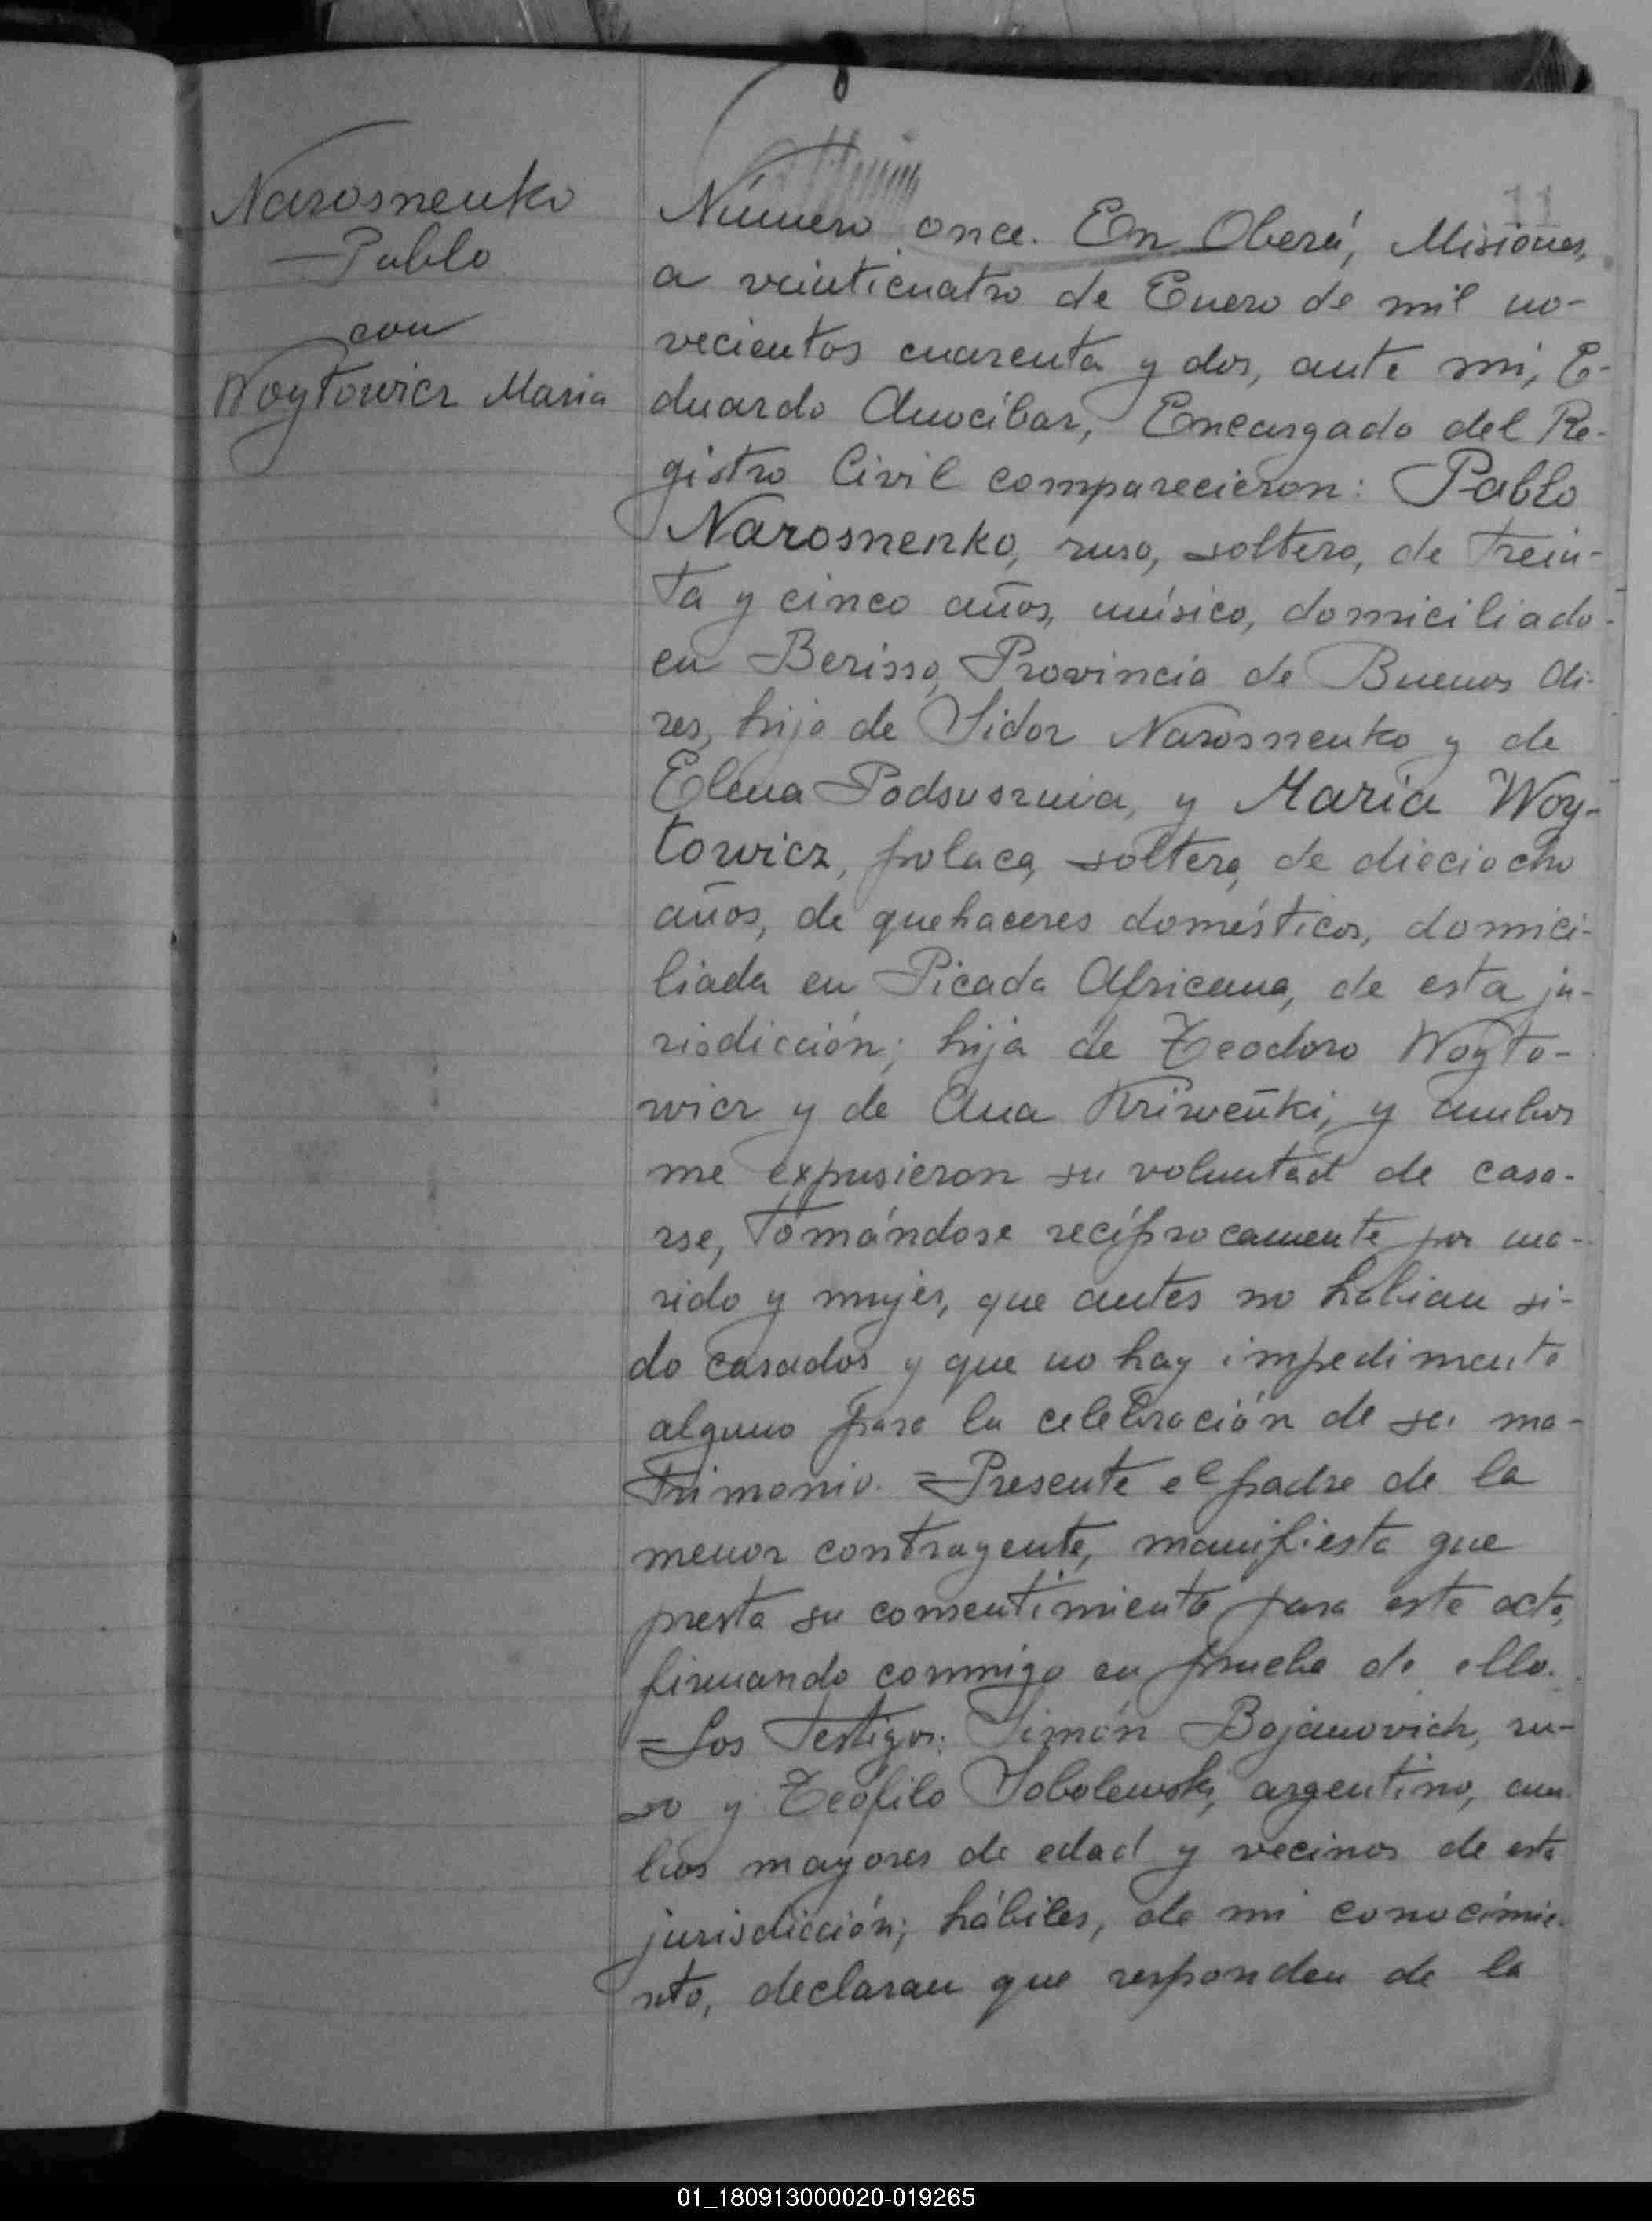 Narosnenko
Pablo
con
Woytowicz Maria
11
Número once. En Oberá, Misiones,
a veinticuatro de Enero de mil no-
vecientos cuarenta y dos, ante mi, E-
duardo Anocíbar, Encargado del Re-
gistro Civil comparecieron: Pablo
Narosnenko, ruso, soltero, de trein-
ta y cinco años, músico, domiciliado
en Berisso, Provincia de Buenos Ai-
res, hijo de Sidor Narosnenko y de
Elena Podsusznia, y Maria Woy-
towicz, polaca, soltera, de dieciocho
años, de quehaceres domésticos, domici-
liada en Picada Africana, de esta ju-
risdicción; hija de Teodoro Woyto-
wicz y de Ana Kriweñki, y ambos
me expusieron su voluntad de casa-
rse, tomándose recíprocamente por ma-
rido y mujer, que antes no habian si-
do casados y que no hay impedimento
alguno para la celebración de su ma-
trimonio. = Presente el padre de la
menor contrayente, manifiesta que
presta su consentimiento para este acto,
firmando conmigo en prueba de ello.
= Los testigos: Simón Bojanovich, ru-
so y Teófilo Sobolewski, argentino, am-
bos mayores de edad y vecinos de esta
jurisdicción; hábiles, de mi conocimie-
nto, declaran que responden de la
01_180913000020-019265